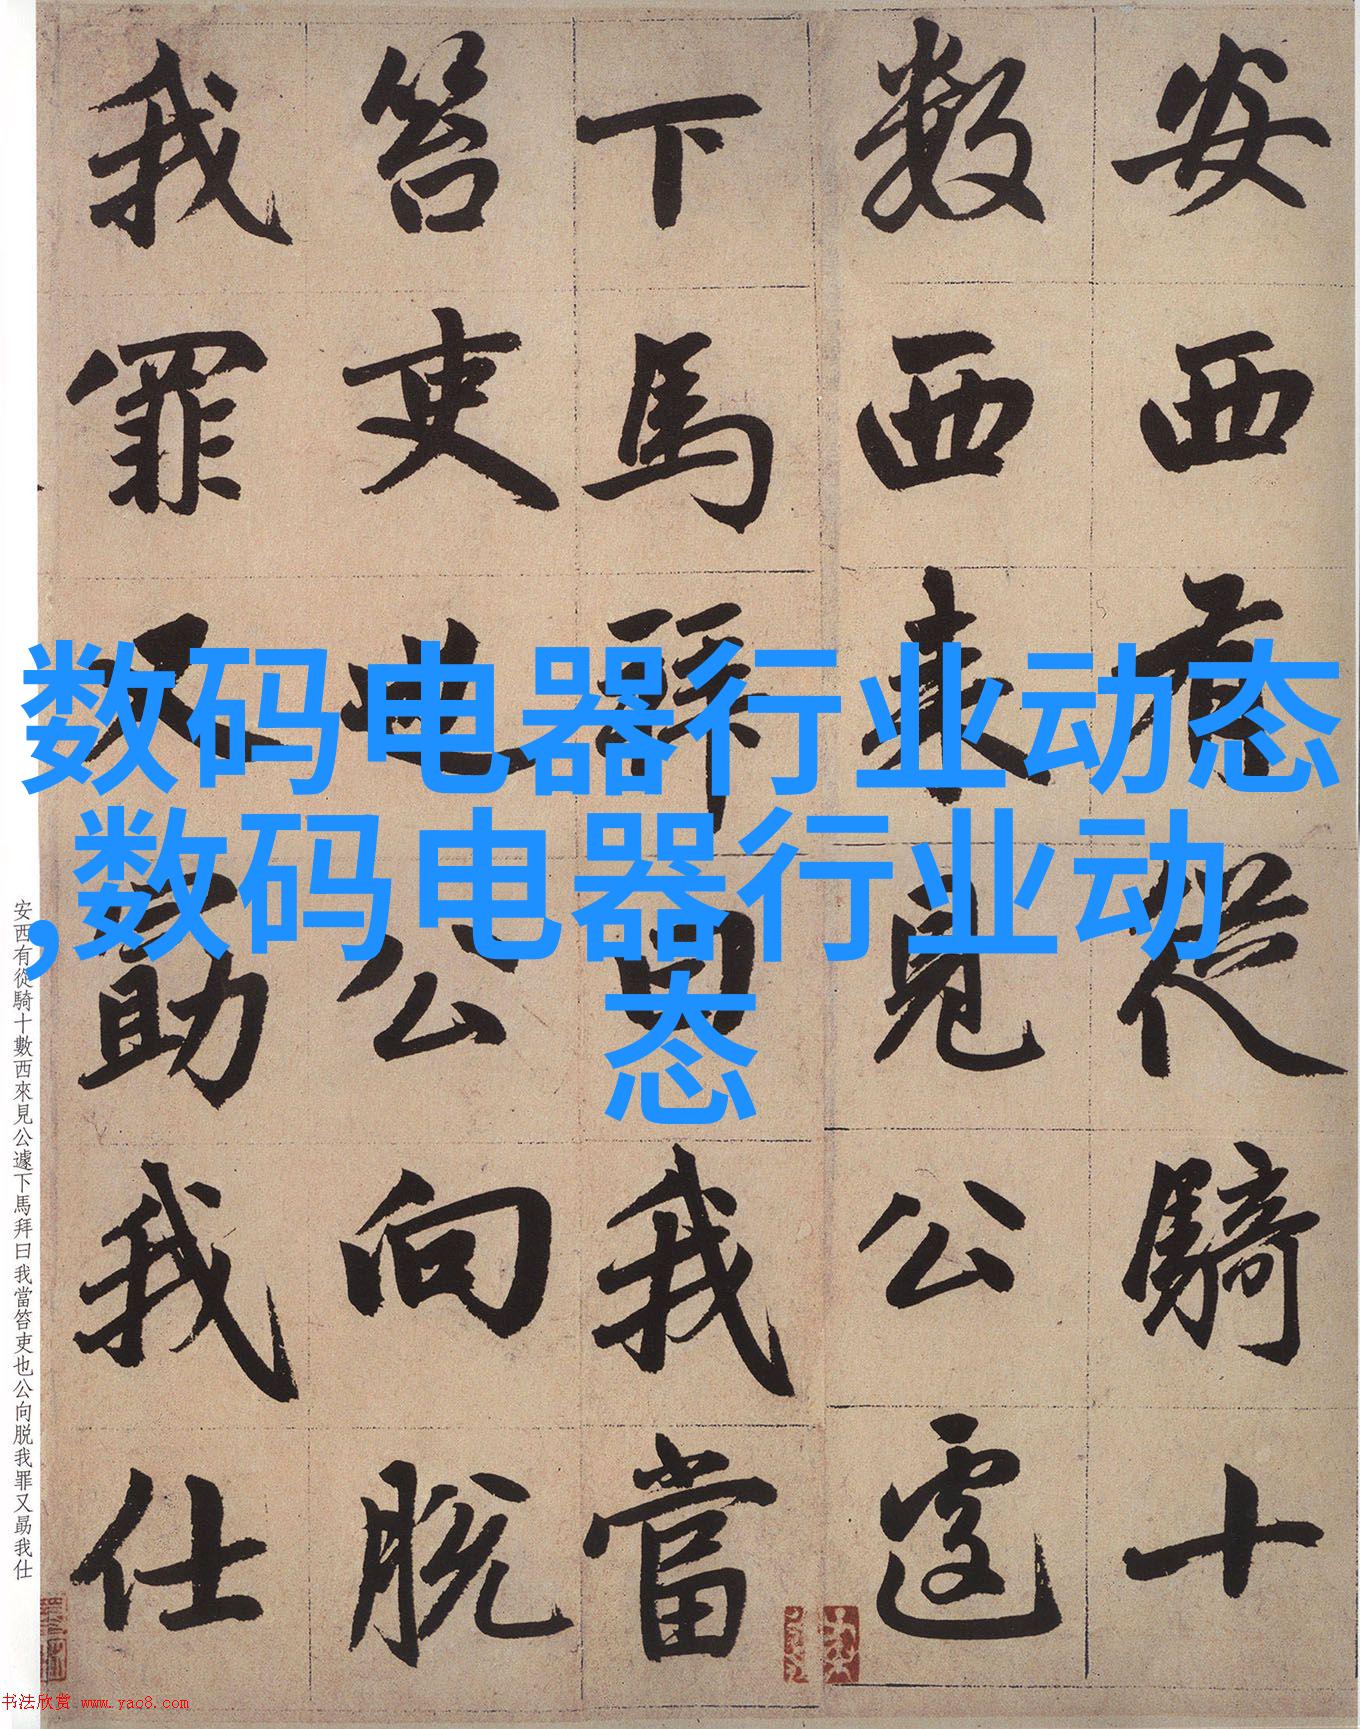 安西有從騎十
數西來見公遽
下馬拜曰我當
笞吏也公向脱
我罪又勗我仕
数码电器行业动态
,数码电器行业动
态
安西有從騎十數西來見公遽下馬拜曰我當笞吏也公向脱我罪又勗我仕
书法欣赏 www.yac8.com